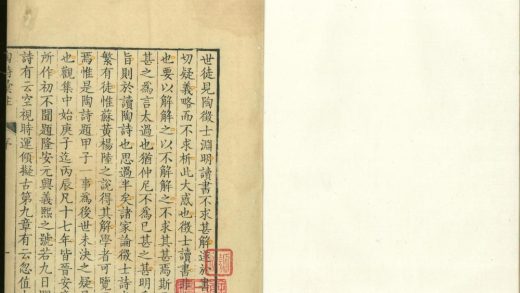 世徒見陶徵士淵明讀書不求甚解遂於書
切疑義略而不求析此大惑也徵士讀書非
也要以解解之以不解解之不求其甚焉斯
甚之為言太過也猶仲尼不為已甚之甚明乎
旨則於讀陶詩也思過半矣諸家論徵士詩
繁有徒惟蘇黃楊陸之說得其解學者可覽
焉惟是陶詩題甲子一事為後世未決之疑
也觀集中始庚子迄丙辰凡十七年皆晉安
所作初不聞題隆安元興義熙之號若九日閒
詩有云空視時運傾擬古第九章有云忽值山
陶詩彙注 序 一